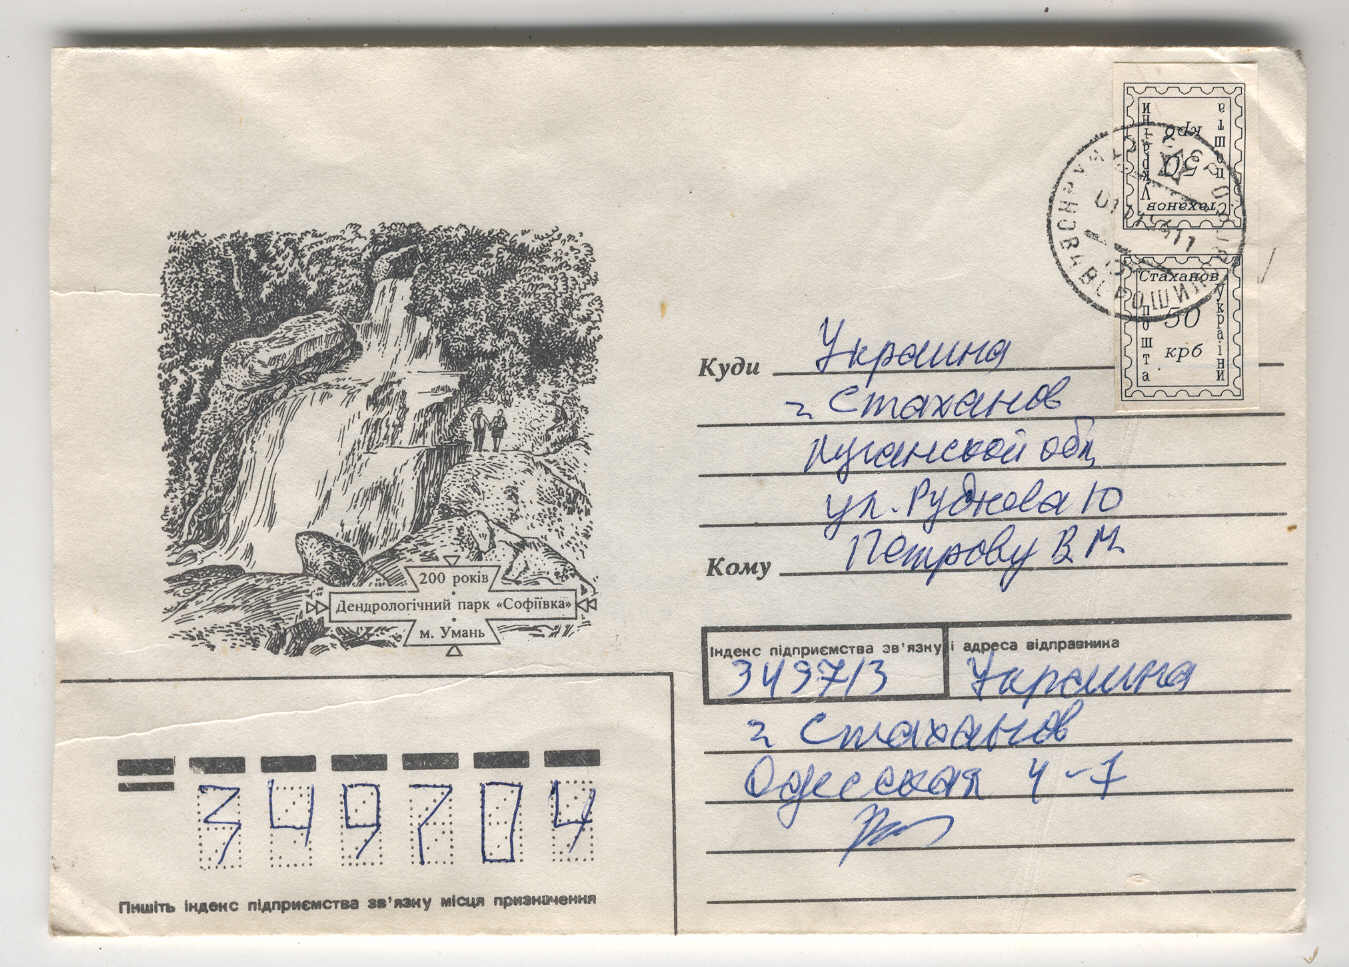 Стаханов
50
крб
пошта
України
Стаханов
50
крб
пошта
України
Куди Украина
г Стаханов
Луганской обл
ул. Руднева 10
Кому Петрову В М
200 років
Дендрологічний парк «Софіївка»
м. Умань
Індекс підприємства зв'язку і адреса відправника
349713 Украина
г Стаханов
Одесская 4-7
349704
Пишіть індекс підприємства зв'язку місця призначення